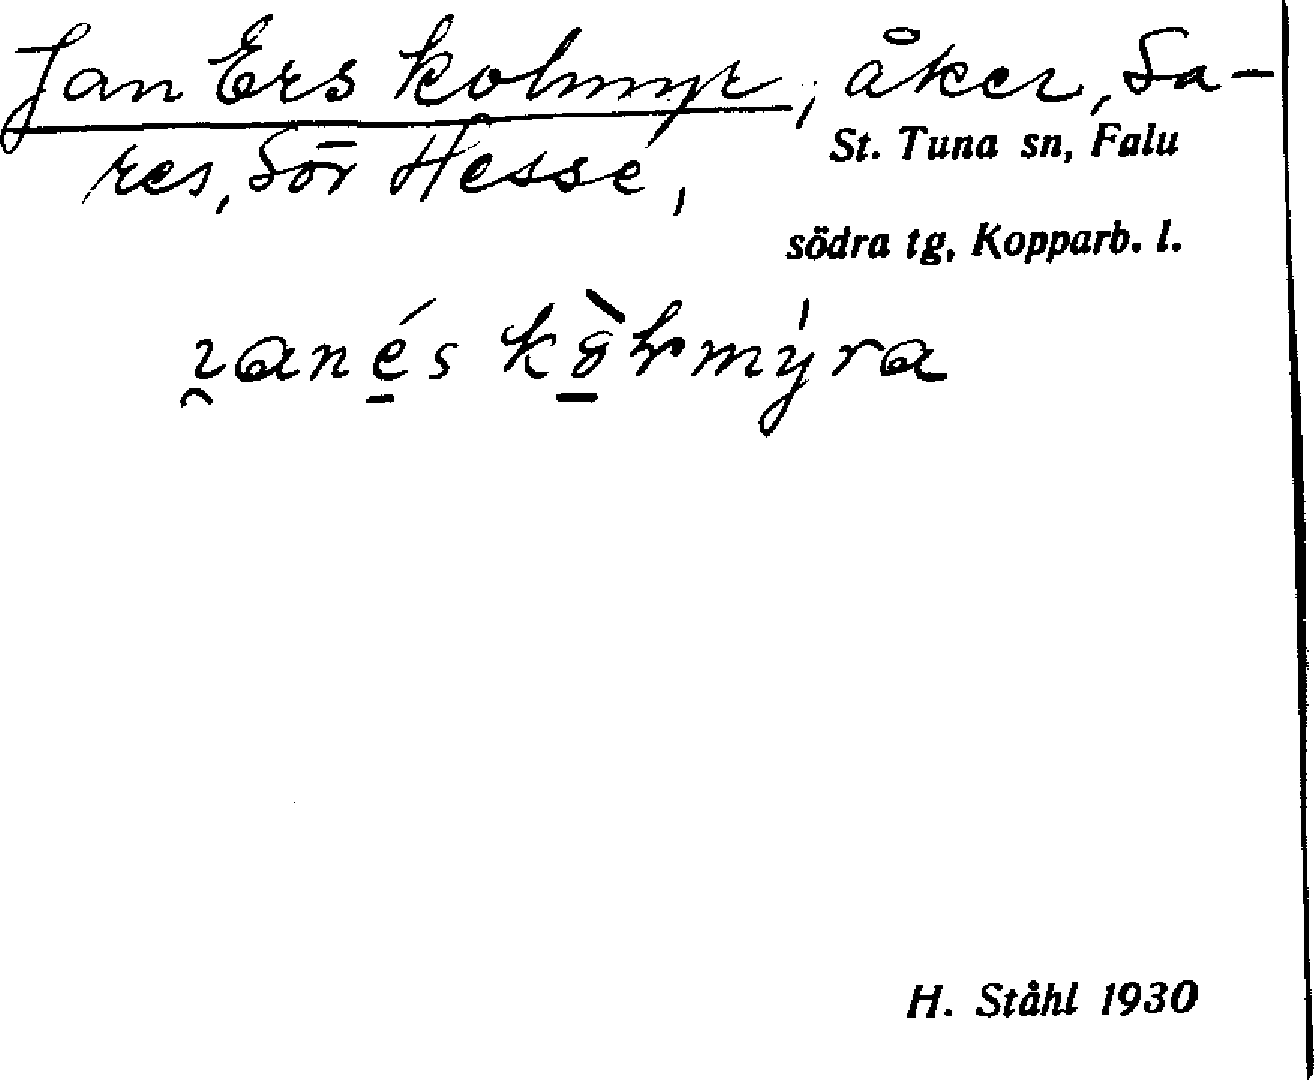 Jan Ers kolmyr, åker, Sa-
res, Sör Hesse,
St. Tuna sn, Falu
södra tg, Kopparb. l.
H. Ståhl 1930